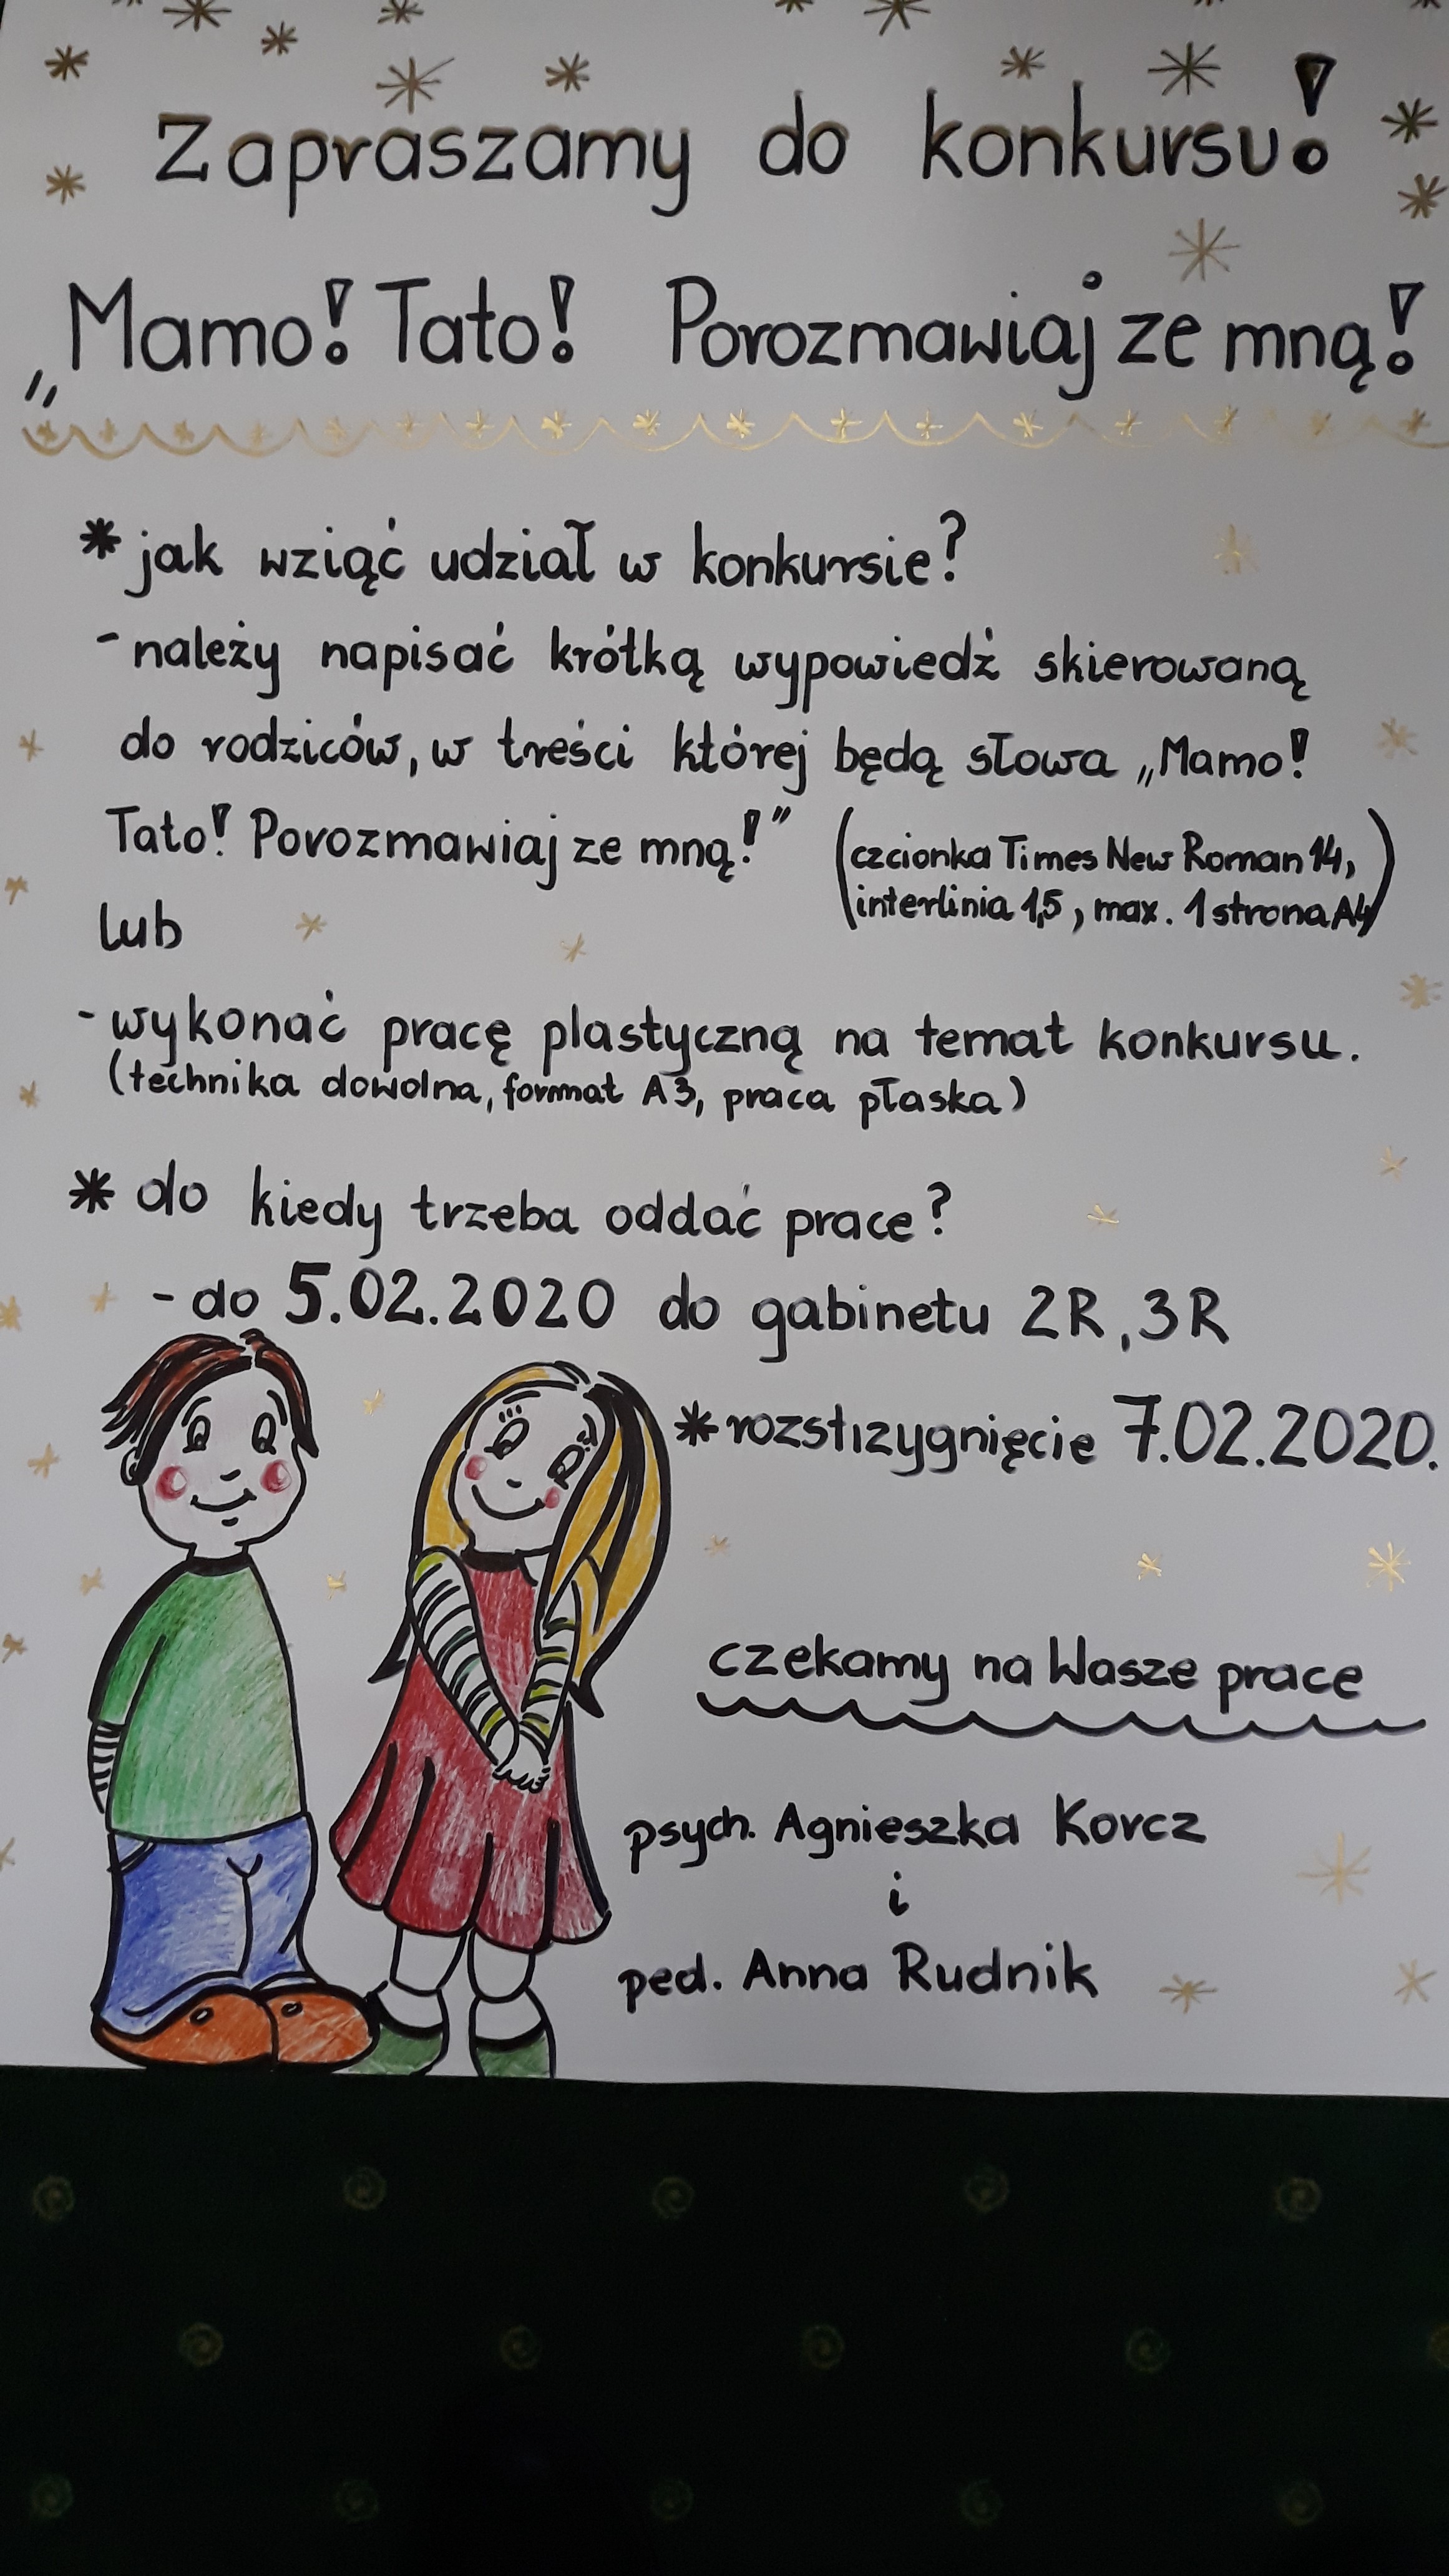 Zapraszamy do konkursu!
„Mamo! Tato! Porozmawiaj ze mną!
* jak wziąć udział w konkursie?
- należy napisać krótką wypowiedź skierowaną
do rodziców, w treści której będą słowa „Mamo!
Tato! Porozmawiaj ze mną!" (czcionka Times New Roman 14,
interlinia 1,5, max. 1 strona A4)
lub
- wykonać pracę plastyczną na temat konkursu.
(technika dowolna, format A3, praca płaska)
* do kiedy trzeba oddać prace?
- do 5.02.2020 do gabinetu 2R, 3R
* rozstrzygnięcie 7.02.2020.
czekamy na Wasze prace
psych. Agnieszka Korcz
i
ped. Anna Rudnik